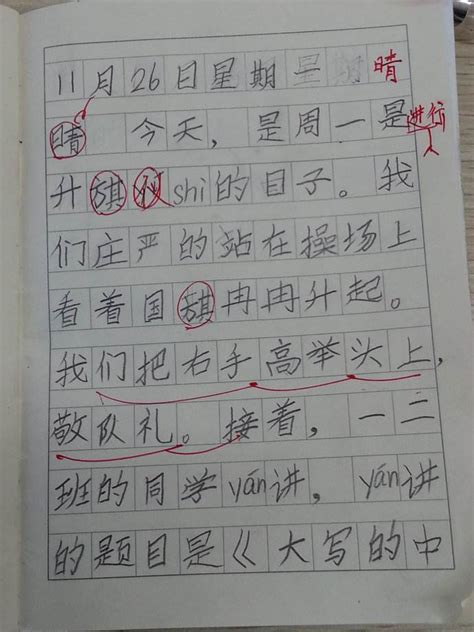 11月26日星期一 晴
晴 今天，是周一是进行
升旗仪shi的日子。我
们庄严的站在操场上
看着国旗冉冉升起。
我们把右手高举头上，
敬队礼。接着，一二
班的同学yǎn讲，yǎn讲
的题目是《大写的中